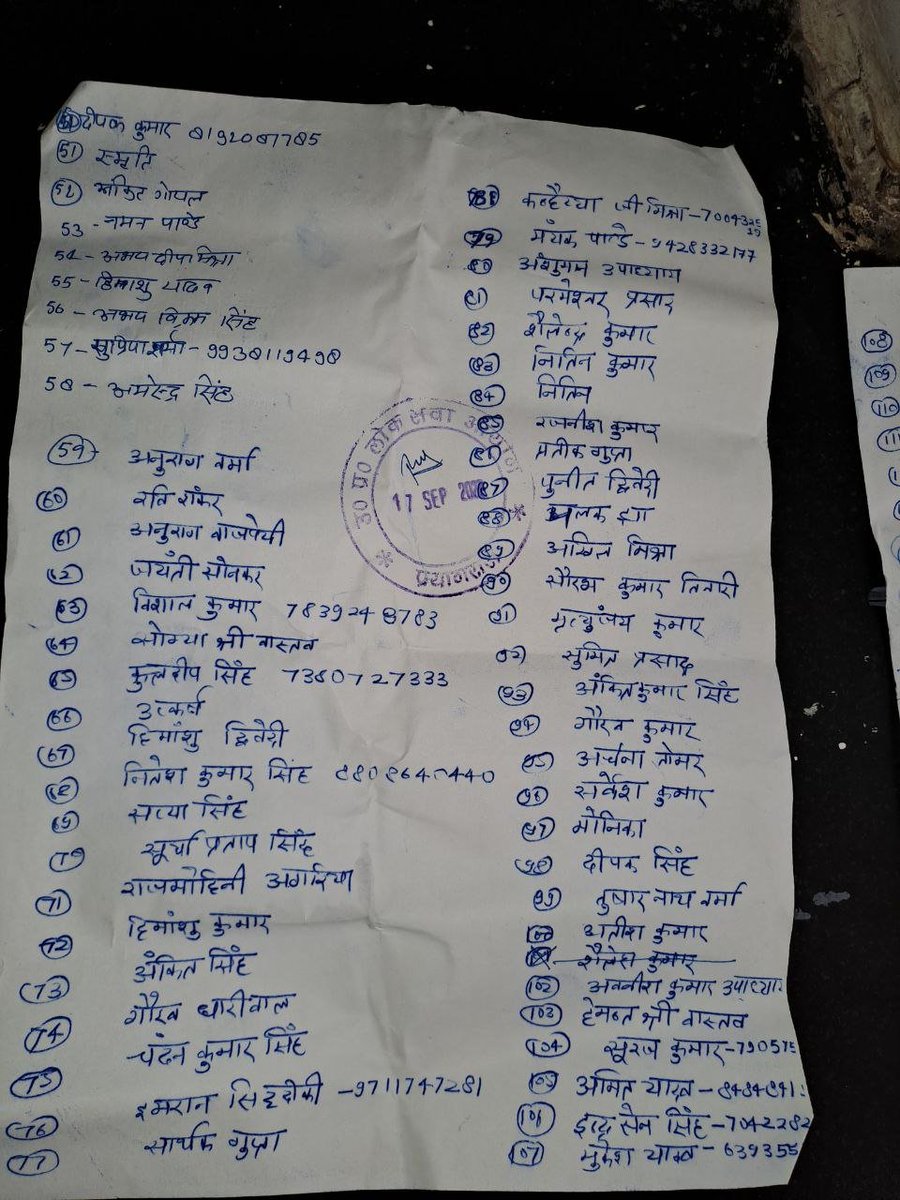 50 दीपक कुमार 8192087785
51 स्मृति
52 अंकित गोयल
53 - नमन पाण्डे
54 - अभय दीप मिश्रा
55 - हिमांशु यादव
56 - अभय विक्रम सिंह
57 - सुप्रिया शर्मा - 9938119498
58 - अमरेन्द्र सिंह
59 अनुराग वर्मा
60 रवि शंकर
61 अनुराग वाजपेयी
62 जयंती सोनकर
63 विशाल कुमार 7839248783
64 सोम्या श्री वास्तव
65 कुलदीप सिंह 7380727333
66 उत्कर्ष
67 हिमांशु द्विवेदी
68 नितेश कुमार सिंह
69 सत्या सिंह
70 सूर्या प्रताप सिंह
71 राजमोहिनी अगरिया
72 हिमांशु कुमार
73 अंकित सिंह
74 गौरव धारीवाल
75 चंदन कुमार सिंह
76 इमरान सिद्दीकी - 9711747281
77 सार्थक गुप्ता
78 कन्हैय्या जी मिश्रा - 7004325
19
79 मयंक पाण्डे - 9428332177
80 अंशुगम उपाध्याय
81 परमेश्वर प्रसाद
82 शैलेन्द्र कुमार
83 नितिन कुमार
84 नितिन
85 रजनीश कुमार
प्रतीक गुप्ता
87 पुनीत द्विवेदी
88 झा
89 अमित मिश्रा
90 सौरभ कुमार तिवारी
91 मृत्युंजय कुमार
92 सुमित प्रसाद
93 अंकित कुमार सिंह
94 गौरव कुमार
95 अर्चना तोमर
96 सर्वेश कुमार
97 मोनिका
98 दीपक सिंह
99 तुषार नाथ वर्मा
100 अतीश कुमार
शैलेश कुमार
102 अवनीश कुमार उपाध्याय
103 हेमन्त श्री वास्तव
104 सूरज कुमार - 790575
105 अमित यादव - 8484841
106 इन्द्र सेन सिंह - 7042282
107 मुकेश यादव - 639355
उ० प्र० लोक सेवा आयोग
17 SEP
प्रयागराज
108
109
110